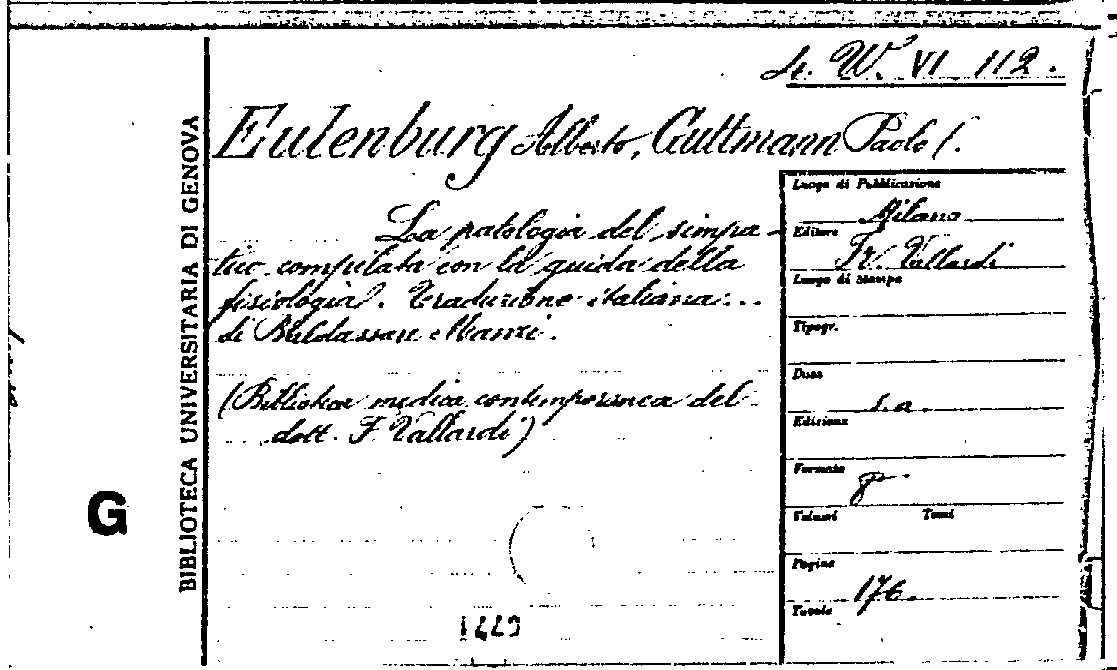 W. VI 112.
Eulenburg Alberto, Guttmann Paolo
La patologia del simpa-
tico compilata con la guida della
fisiologia. Traduzione italiana...
di Baldassare Manzi.
(Biblioteca medica contemporanea del
dott. F. Vallardi)
BIBLIOTECA UNIVERSITARIA DI GENOVA
G
Luogo di Pubblicazione
Milano
Editore
Fr. Vallardi
Luogo di Stampa
Tipogr.
Data
s.a.
Edizione
Formato
8°
Volumi Tomi
Pagine
176.
Tavole